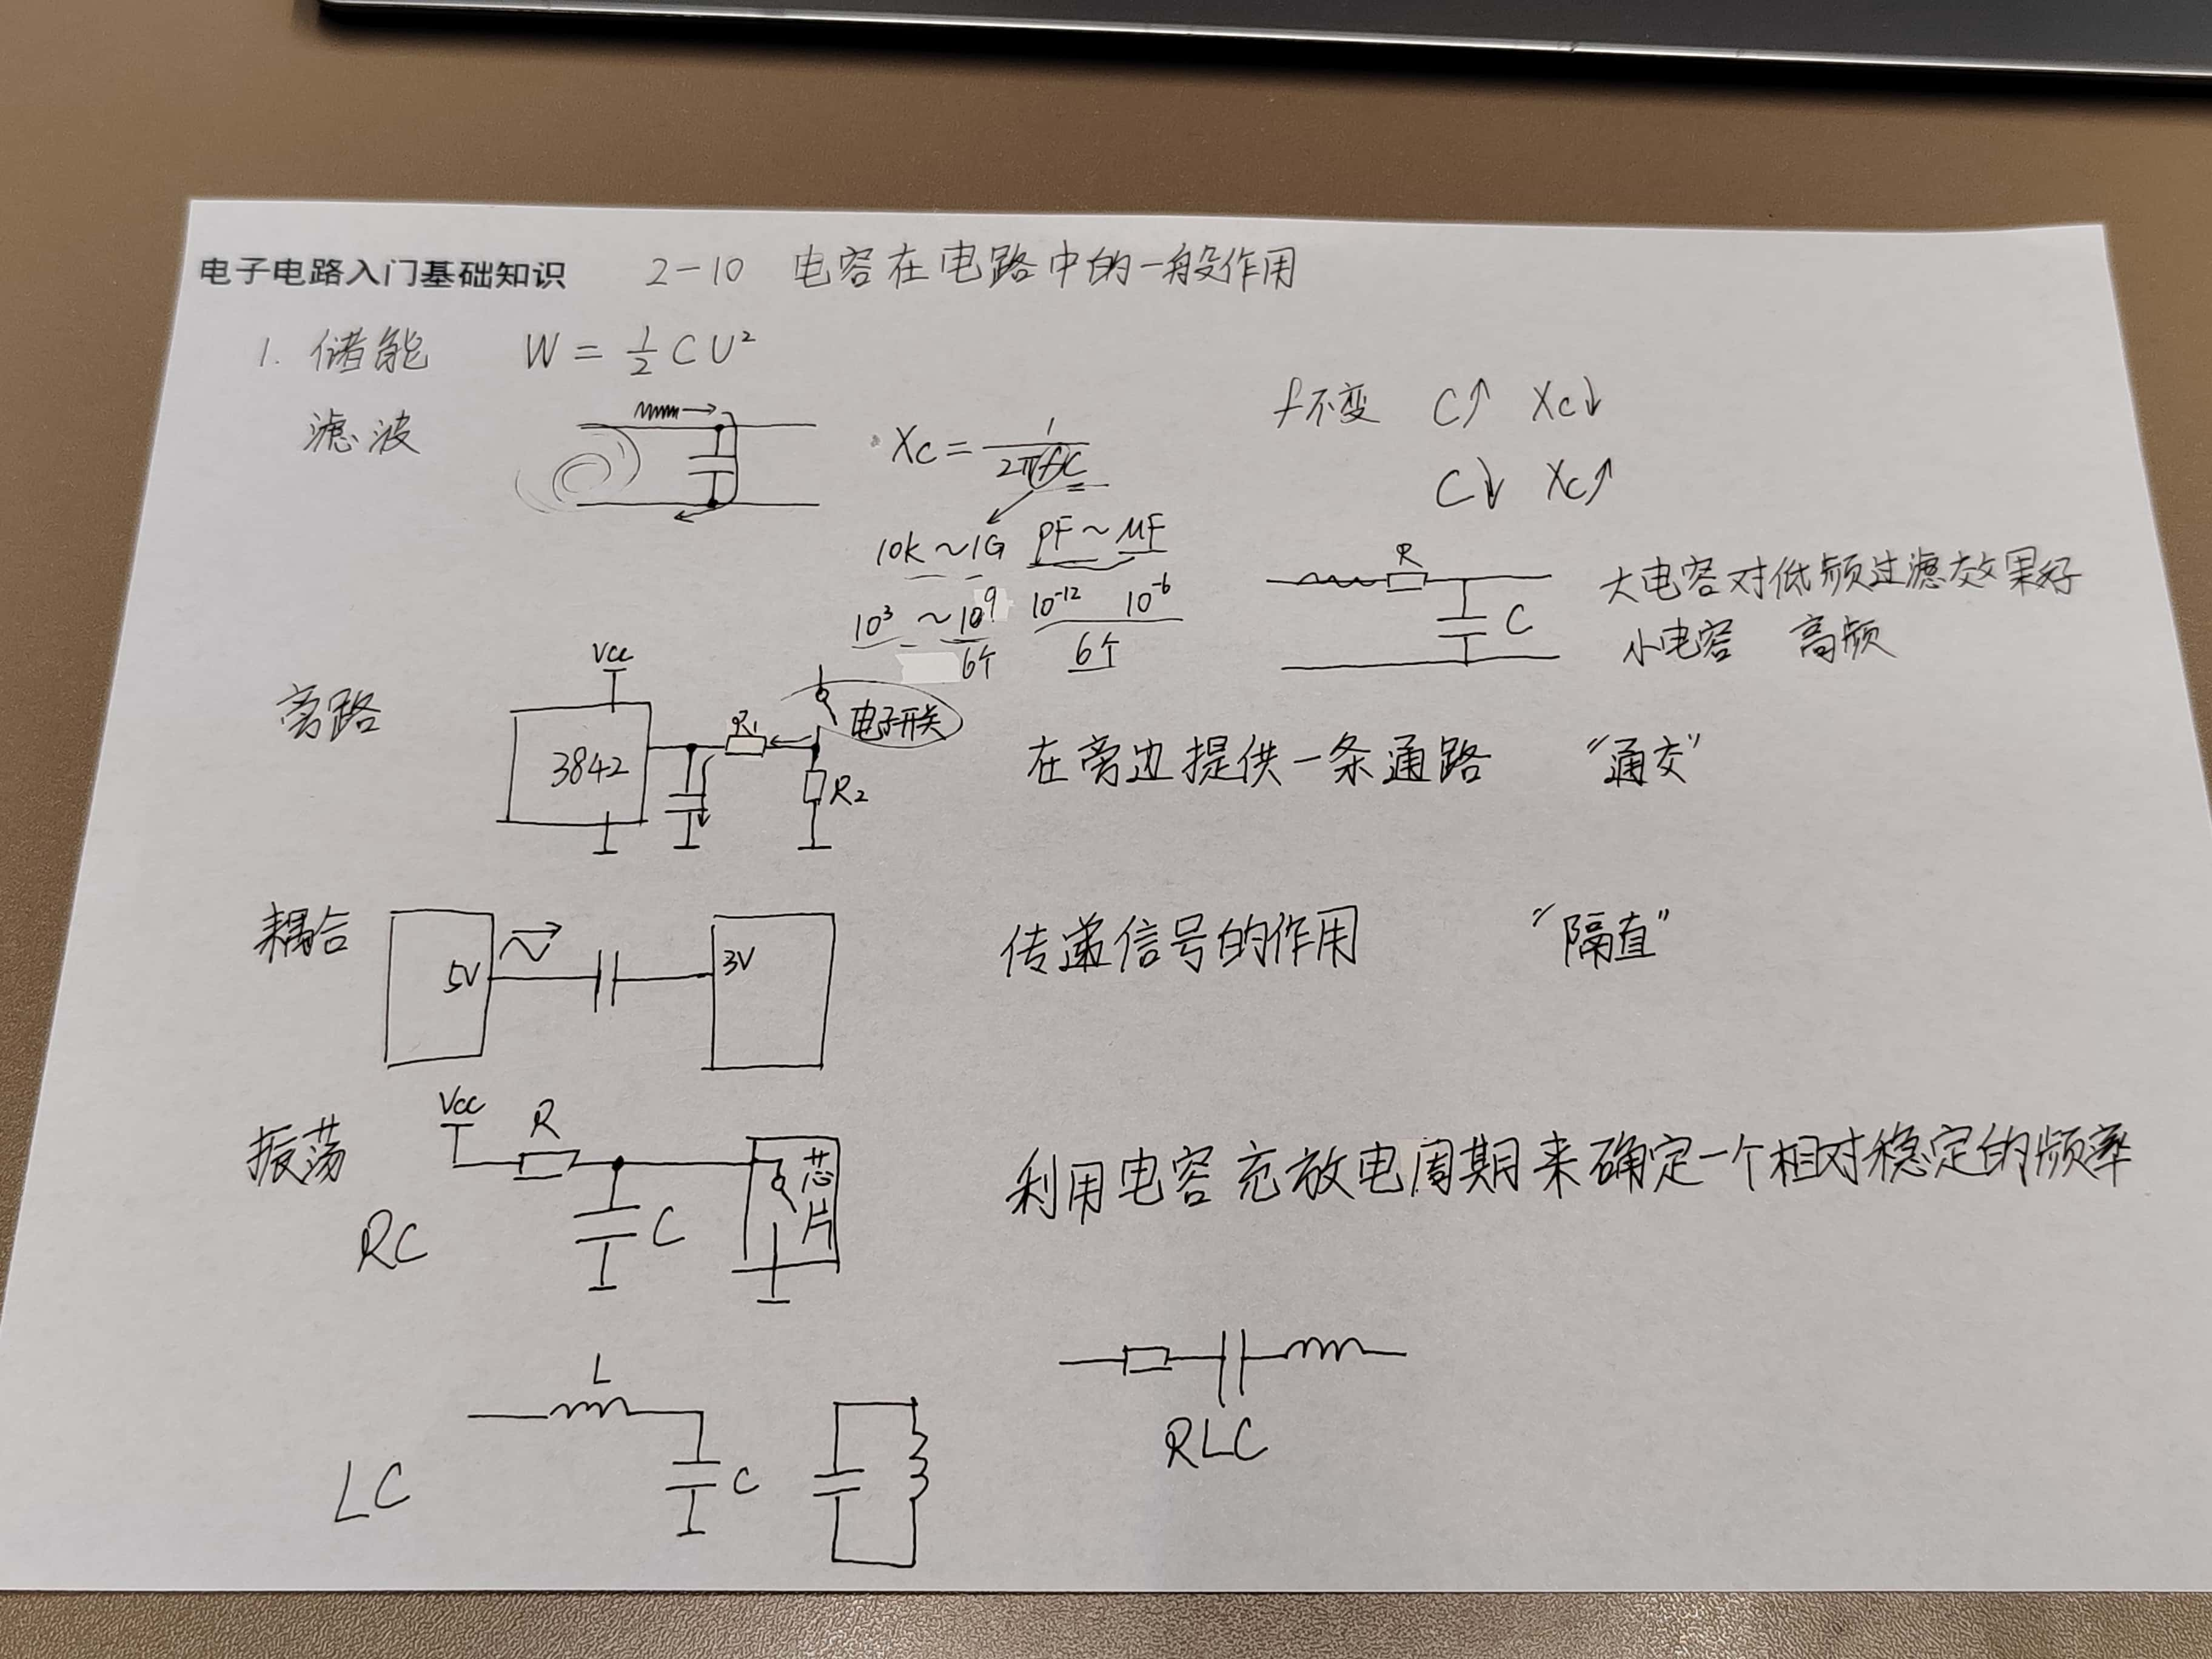 电子电路入门基础知识 2-10 电容在电路中的一般作用
1. 储能 W = ½CU²
滤波
Xc = 1/(2πfC)
f不变 C↑ Xc↓
C↓ Xc↑
10K ~ 1G PF ~ μF
10³ ~ 10⁹ 10⁻¹² 10⁻⁶
6个 6个
R
C
大电容对低频过滤效果好
小电容 高频
旁路
Vcc
3842
R₁
电子开关
R₂
在旁边提供一条通路 “通交”
耦合
5V
3V
传递信号的作用 “隔直”
振荡
Vcc
R
C
芯片
RC
利用电容充放电周期来确定一个相对稳定的频率
L
C
LC
RLC